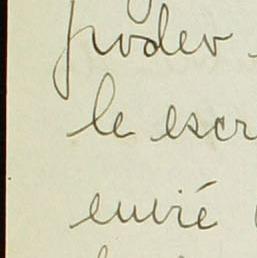 poder
le escr
envié